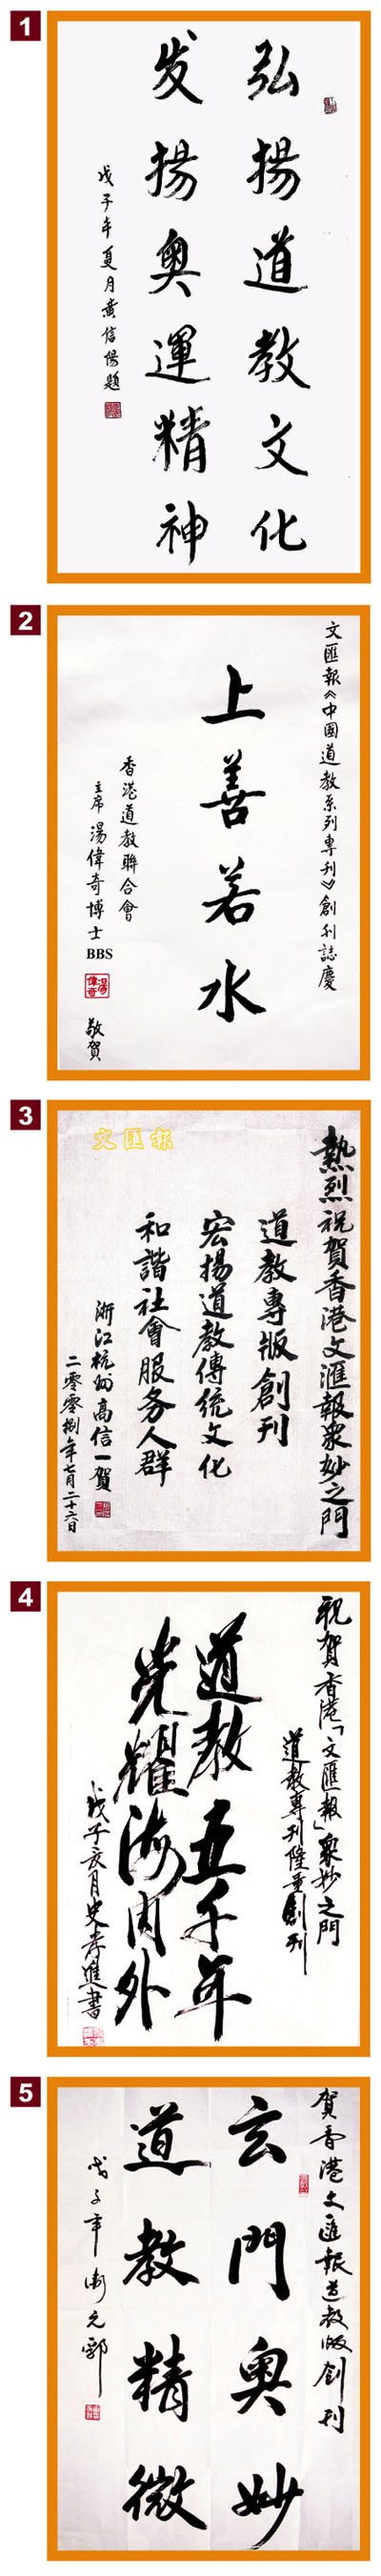 1
弘揚道教文化
发揚奥運精神
戊子年夏月黄信陽題
2
文匯報《中國道教系列專刊》創刊誌慶
上善若水
香港道教聯合會
主席湯偉奇博士
BBS
湯偉奇
敬賀
3
熱烈祝賀香港文匯報衆妙之門
道教專版創刊
宏揚道教傳统文化
和諧社會服务人群
浙江杭州高信一賀
二零零捌年七月二十六日
文匯報
4
祝賀香港「文匯報」衆妙之門
道教專刊隆重創刊
道教五千年
光耀海内外
戊子亥月史孝進書
5
賀香港文匯報道教版創刊
玄門奥妙
道教精微
戊子年